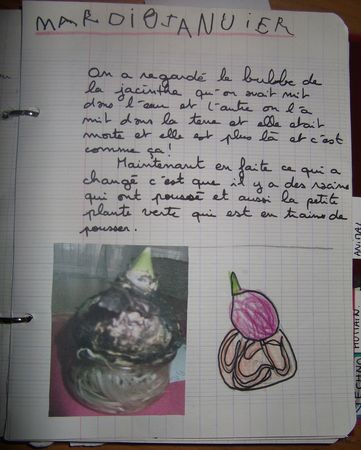 MARDI 8 JANVIER
On a regardé le bulbe de
la jacinthe qu'on avait mit
dans l'eau et l'autre on l'a
mit dans la terre et elle était
morte et elle est plus là et c'est
comme ça!
Maintenant en faite ce qui a
changé c'est que il y a des racines
qui ont poussé et aussi la petite
plante verte qui est en trains de
pousser.
HUMAIN
TECHNO